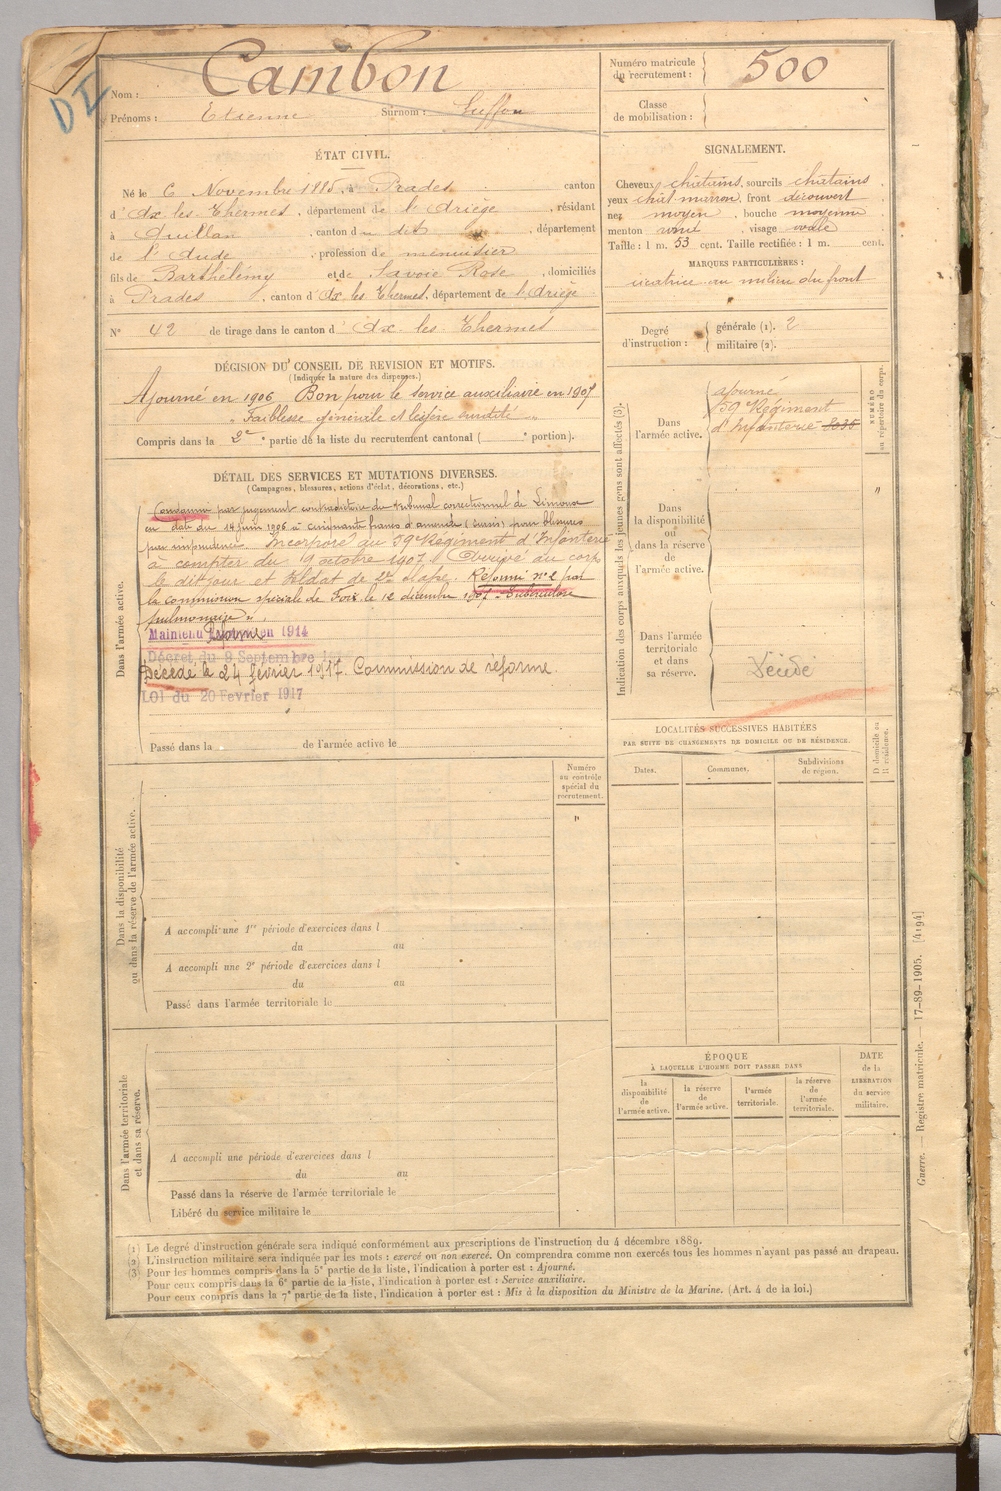 DI
Nom : Cambon
Prénoms : Etienne Surnom :
Numéro matricule du recrutement : 500
Classe de mobilisation :
ÉTAT CIVIL.
Né le 6 Novembre 1885, à Prades canton
d'Ax les Thermes, département de l'Ariège, résidant
à Quillan, canton du dit, département
de l'Aude, profession de menuisier
fils de Barthélemy et de Savoie Rose, domiciliés
à Prades, canton d'Ax les Thermes, département de l'Ariège
N° 42 de tirage dans le canton d'Ax les Thermes
SIGNALEMENT.
Cheveux châtains, sourcils châtains
yeux chât marron, front découvert
nez moyen, bouche moyenne
menton rond, visage ovale
Taille : 1 m. 53 cent. Taille rectifiée : 1 m. cent.
MARQUES PARTICULIÈRES :
cicatrice au milieu du front
Degré d'instruction : générale (1). 2
militaire (2).
DÉCISION DU CONSEIL DE REVISION ET MOTIFS.
(Indiquer la nature des dispenses.)
Ajourné en 1906 Bon pour le service auxiliaire en 1907
"Faiblesse générale et légère surdité"
Compris dans la 2e partie de la liste du recrutement cantonal ( portion).
DÉTAIL DES SERVICES ET MUTATIONS DIVERSES.
(Campagnes, blessures, actions d'éclat, décorations, etc.)
Dans l'armée active.
Condamné par jugement contradictoire du tribunal correctionnel de Limoux
en date du 14 juin 1906 à cinquante francs d'amende (sursis) pour blessures
par imprudence. Incorporé au 59e Régiment d'Infanterie
à compter du 9 octobre 1907. Arrivé au corps
le dit jour et soldat de 2e classe. Réformé n° 2 par
la commission spéciale de Foix le 12 décembre 1907 "Tuberculose
pulmonaire".
Maintenu Réformé en 1914
Décret du 9 Septembre
Décédé le 24 février 1917. Commission de réforme.
LOI du 20 Fevrier 1917
Passé dans la de l'armée active le
Indication des corps auxquels les jeunes gens sont affectés (3).
NUMÉRO au répertoire du corps.
Dans l'armée active.
ajourné
59 Régiment
d'Infanterie
Dans la disponibilité ou dans la réserve de l'armée active.
"
Dans l'armée territoriale et dans sa réserve.
Décédé
LOCALITÉS SUCCESSIVES HABITÉES
PAR SUITE DE CHANGEMENTS DE DOMICILE OU DE RÉSIDENCE.
Dates. Communes. Subdivisions de région. D. domicile ou R. résidence.
Numéro au contrôle spécial du recrutement.
"
Dans la disponibilité ou dans la réserve de l'armée active.
A accompli une 1re période d'exercices dans l
du au
A accompli une 2e période d'exercices dans l
du au
Passé dans l'armée territoriale le
Dans l'armée territoriale et dans sa réserve.
A accompli une période d'exercices dans l
du au
Passé dans la réserve de l'armée territoriale le
Libéré du service militaire le
ÉPOQUE
À LAQUELLE L'HOMME DOIT PASSER DANS
la disponibilité de l'armée active.
la réserve de l'armée active.
l'armée territoriale.
la réserve de l'armée territoriale.
DATE de la LIBÉRATION du service militaire.
Guerre. — Registre matricule. — 17-89-1905. [4194]
(1) Le degré d'instruction générale sera indiqué conformément aux prescriptions de l'instruction du 4 décembre 1889.
(2) L'instruction militaire sera indiquée par les mots : exercé ou non exercé. On comprendra comme non exercés tous les hommes n'ayant pas passé au drapeau.
(3) Pour les hommes compris dans la 5e partie de la liste, l'indication à porter est : Ajourné.
Pour ceux compris dans la 6e partie de la liste, l'indication à porter est : Service auxiliaire.
Pour ceux compris dans la 7e partie de la liste, l'indication à porter est : Mis à la disposition du Ministre de la Marine. (Art. 4 de la loi.)